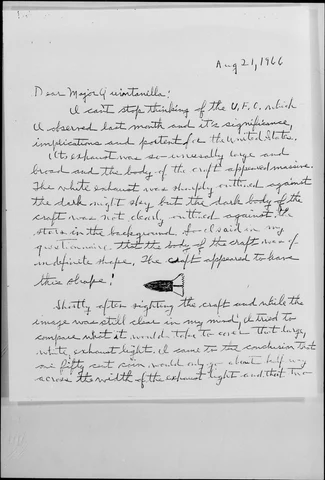 Aug 21, 1966
Dear Major Quintanella:
I can't stop thinking of the U.F.O. which
I observed last month and it's significance,
implications and potent for the United States.
It's exhaust was so unusally large and
broad and the body of the craft appeared massive.
The white exhaust was sharply outlined against
the dark night sky but the dark body of the
craft was not clearly outlined against the
stars in the background. So I said in my
questionnaire that the body of the craft was of
indefinite shape. The craft appeared to have
this shape:
Shortly after sighting the craft and while the
image was still clear in my mind, I tried to
compare what it would take to cover that large,
white exhaust light. I came to the conclusion that
one fifty cent coin would only go about half way
across the width of the exhaust light and that two